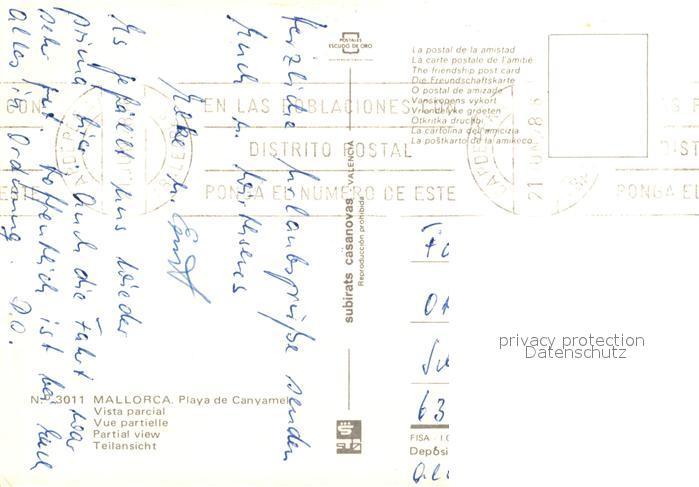 POSTALES
ESCUDO DE ORO
La postal de la amistad
La carte postale de l'amitié
The friendship post card
Die Freundschaftskarte
O postal de amizade
Vanskapens vykort
Vriendlyke groeten
Otkritka druchbi
La cartolina dell'amicizia
La poŝtkarto de la amikeco
EN LAS POBLACIONES CON
DISTRITO POSTAL
PONGA EL NUMERO DE ESTE
PONGA EL
Herzliche Urlaubsgrüße senden
Euch
Heike u. Ernst
Es gefällt uns wieder
prima hier. Auch die Fahrt war
sehr gut. Hoffentlich ist bei Euch
alles in Ordnung.
subirats casanovas VALENCIA
Reproducción prohibida
63
privacy protection
Datenschutz
N.º 3011 MALLORCA. Playa de Canyamel
Vista parcial
Vue partielle
Partial view
Teilansicht
FISA